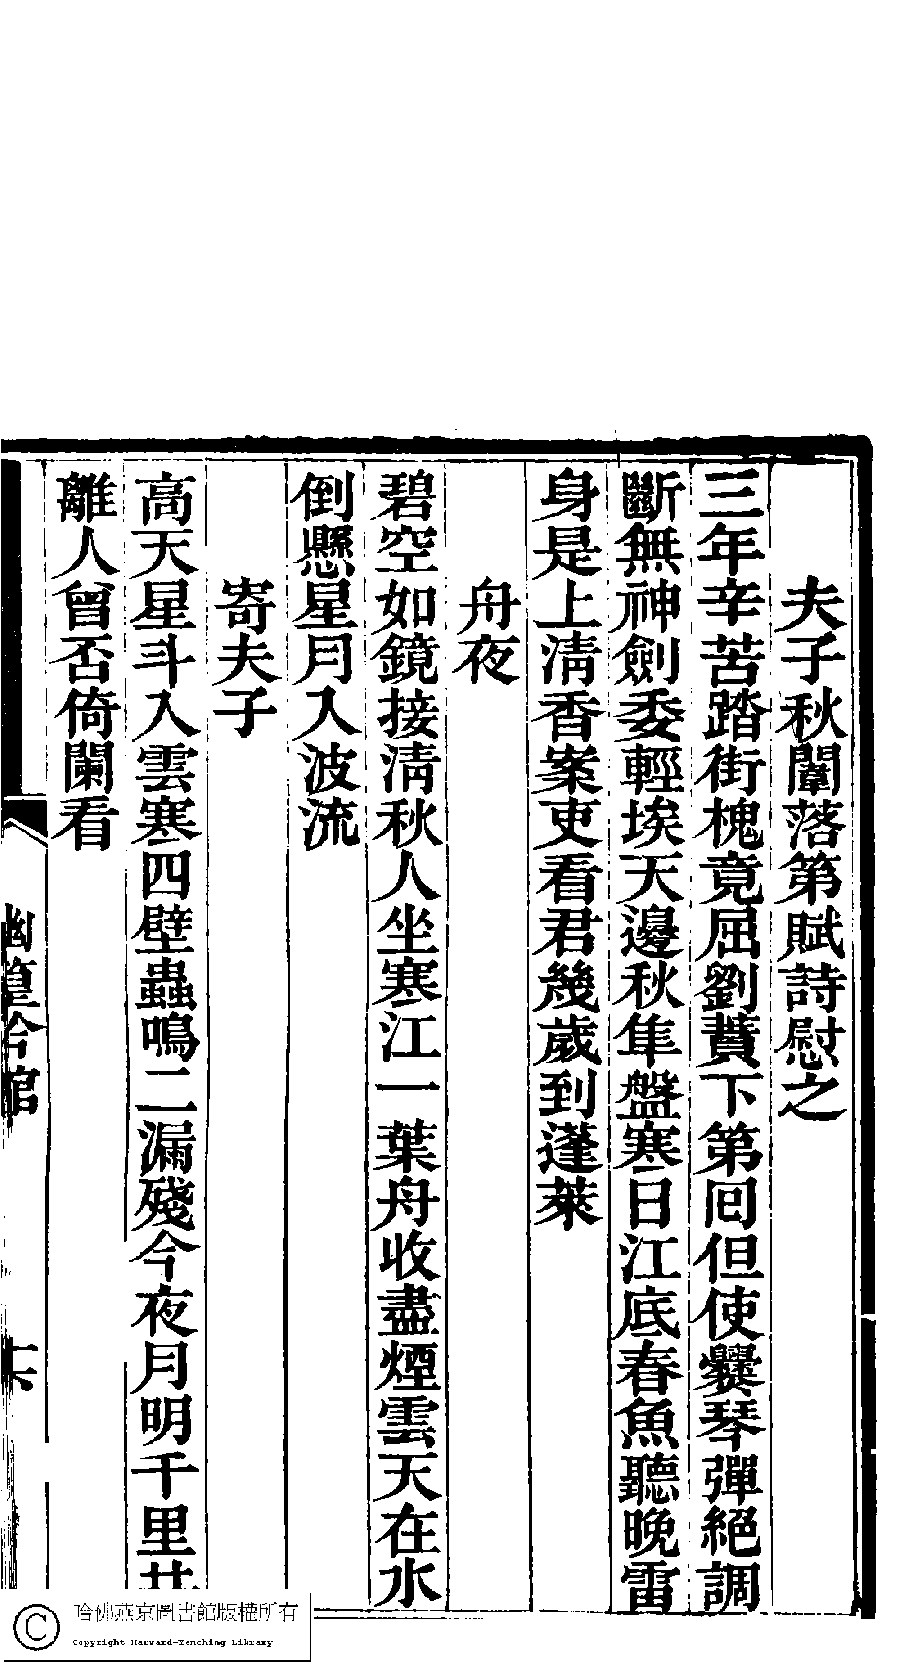 夫子秋闈落第賦詩慰之
三年辛苦踏街槐竟屈劉蕡下第回但使爨琴彈絕調
斷無神劍委輕埃天邊秋隼盤寒日江底春魚聽晚雷
身是上淸香案吏看君幾歲到蓬萊
舟夜
碧空如鏡接淸秋人坐寒江一葉舟收盡煙雲天在水
倒懸星月入波流
寄夫子
高天星斗入雲寒四壁蟲鳴二漏殘今夜月明千里共
離人曾否倚闌看
幽篁吟館
哈佛燕京圖書館版權所有
Copyright Harvard-Yenching Library